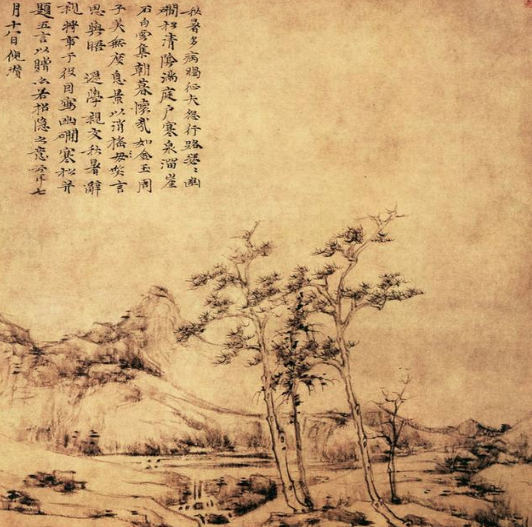 秋暑多病暍征夫怨行路瑟〻幽
磵松清蔭滿庭戶寒泉溜崖
石白雲集朝暮懷哉如金玉周
子美無度息景以消搖咲言
思與晤 遜學親友秋暑辭
親將事于役因寫幽磵寒松并
題五言以贈亦若招隱之意云耳七
月十八日倪瓚